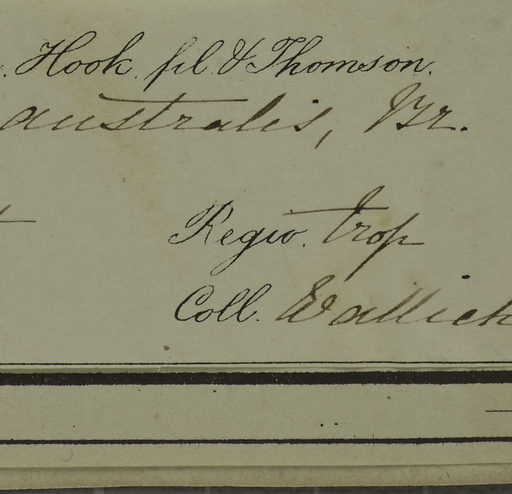 Hook. fil. & Thomson.
australis, Br.
Regio. trop
Coll. Wallich